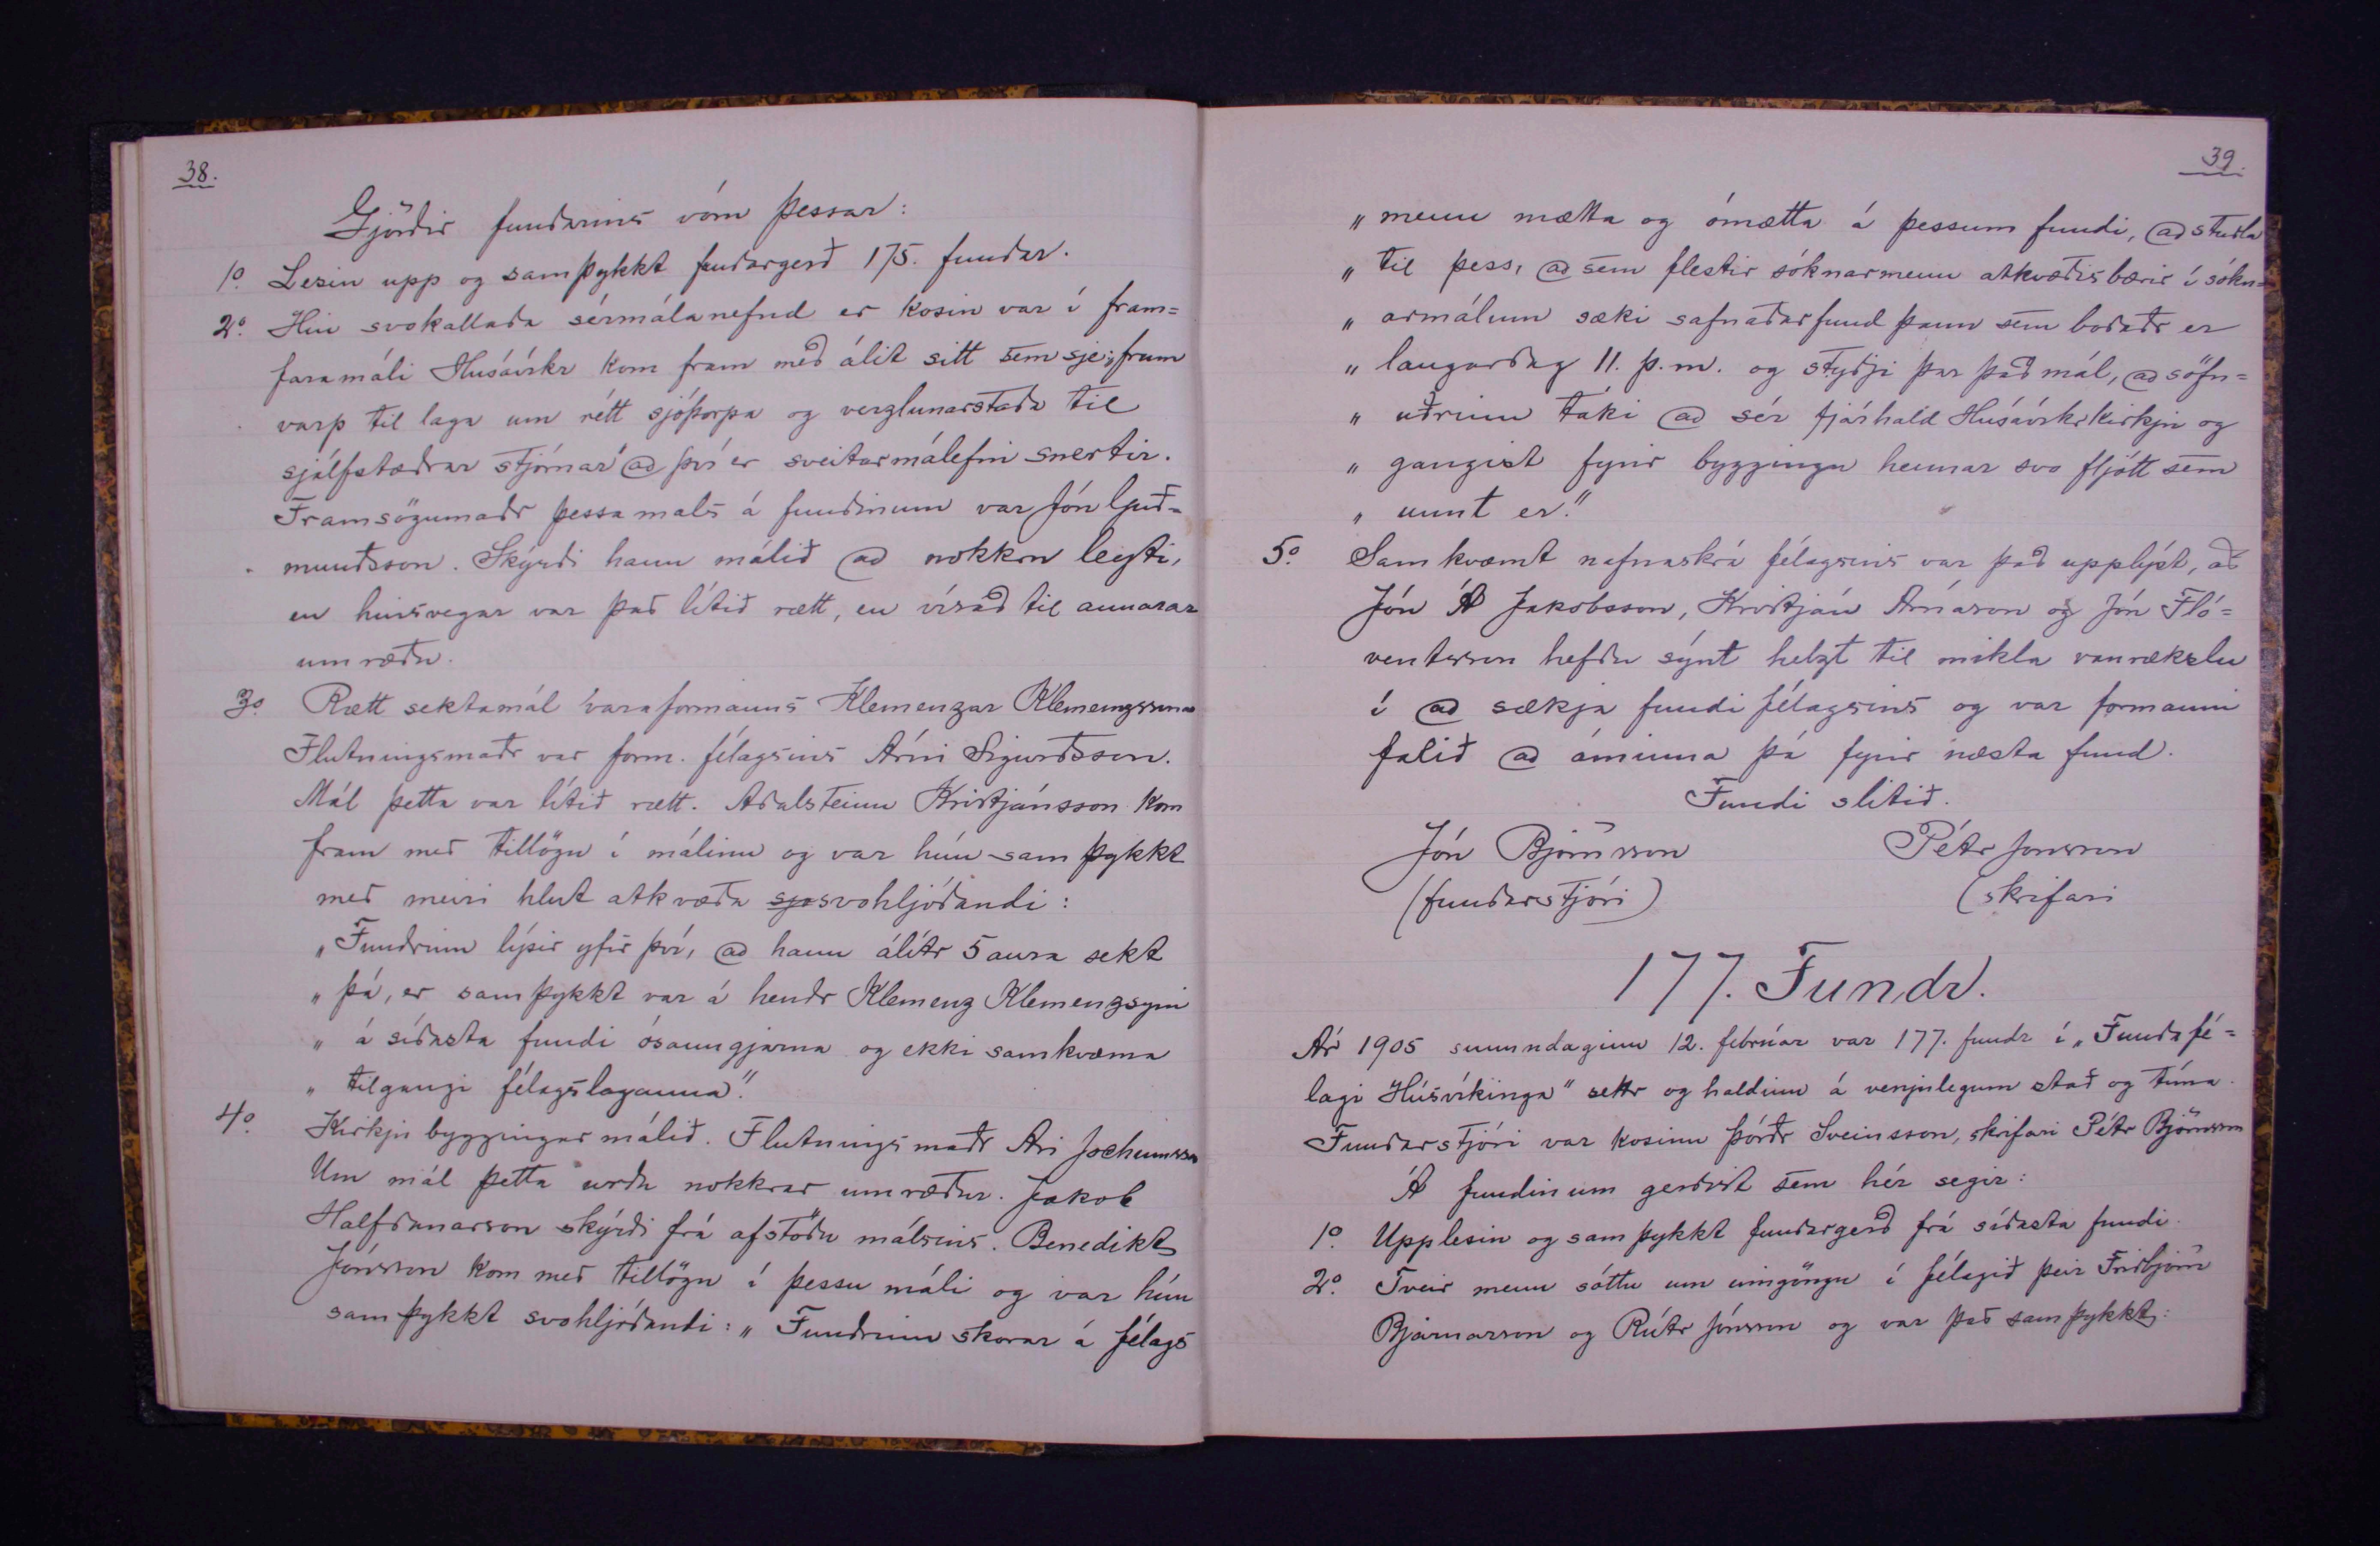 38.
Gjörðir fundarins vóru þessar:
1º. Lesin upp og samþykkt fundargerð 175. fundar.
2º. Hin svokallaða sérmálanefnd er kosin var í fram=
faramáli Húsávíkr kom fram með álit sitt sem sje: „frum
varp til laga um rétt sjóþorpa og verzlunarstaða til
sjálfstæðrar stjórnar" að því er sveitarmálefni snertir.
Framsögumaðr þessa mals á fundinum var Jón Guð=
mundsson. Skýrði hann málið að nokkru leyti,
en hinsvegar var það lítið rætt, en vísað til annarar
umræðu.
3º. Rætt sektamál varaformanns Klemenzar Klemenzsonar
Flutningsmaðr var form. félagsins Árni Sigurðsson.
Mál þetta var lítið rætt. Aðalsteinn Kristjánsson kom
fram með tillögu í málinu og var hún samþykkt
með meiri hlut atkvæða sjo svohljóðandi:
„Fundrinn lýsir yfir því, að hann álítr 5 aura sekt
„ þá, er samþykkt var á hendr Klemenz Klemenzsyni
„ á síðasta fundi ósanngjarna og ekki samkvæma
„ tilgangi félagslaganna".
4º. Kirkju byggingar málið. Flutningsmaðr Ari Jochumsson
Um mál þetta urðu nokkrar umræður. Jakob
Halfdanarson skýrði frá afstöðu málsins. Benedikt
Jónsson kom með tillögu í þessu máli og var hún
samþykkt svohljóðandi: „Fundrinn skorar á félags
39.
„ menn mætta og ómætta á þessum fundi, að stuðla
„ til þess, að sem flestir sóknarmenn atkvæðisbærir í sókn=
„ armálum sæki safnaðarfund þann sem boðaðr er
„ laugardag 11. þ.m. og styðji þar það mál, að söfn=
„ uðrinn taki að sér fjárhald Húsávíkrkirkju og
„ gangist fyrir byggingu hennar svo fljótt sem
„ unnt er."
5º. Samkvæmt nafnaskrá félagsins var það upplýst, að
Jón Á Jakobsson, Kristján Árnason og Jón Fló=
ventsson hefðu sýnt helzt til mikla vanrækslu
í að sækja fundi félagsins og var formanni
falið að áminna þá fyrir næsta fund.
Fundi slitið.
Jón Björnsson Pétr Jonsson
(fundarstjóri) (skrifari
177. Fundr.
Ár 1905 sunnudaginn 12. febrúar var 177. fundr í „Fundafé=
lagi Húsvíkinga" settr og haldinn á venjulegum stað og tíma.
Fundarstjóri var kosinn Þórðr Sveinsson, skrifari Pétr Björnsson
Á fundinum gerðist sem hér segir:
1º. Upplesin og samþykkt fundargerð frá síðasta fundi.
2º. Tveir menn sóttu um inngöngu í félagið þeir Friðbjörn
Bjarnarson og Rútr Jónsson og var það samþykkt: